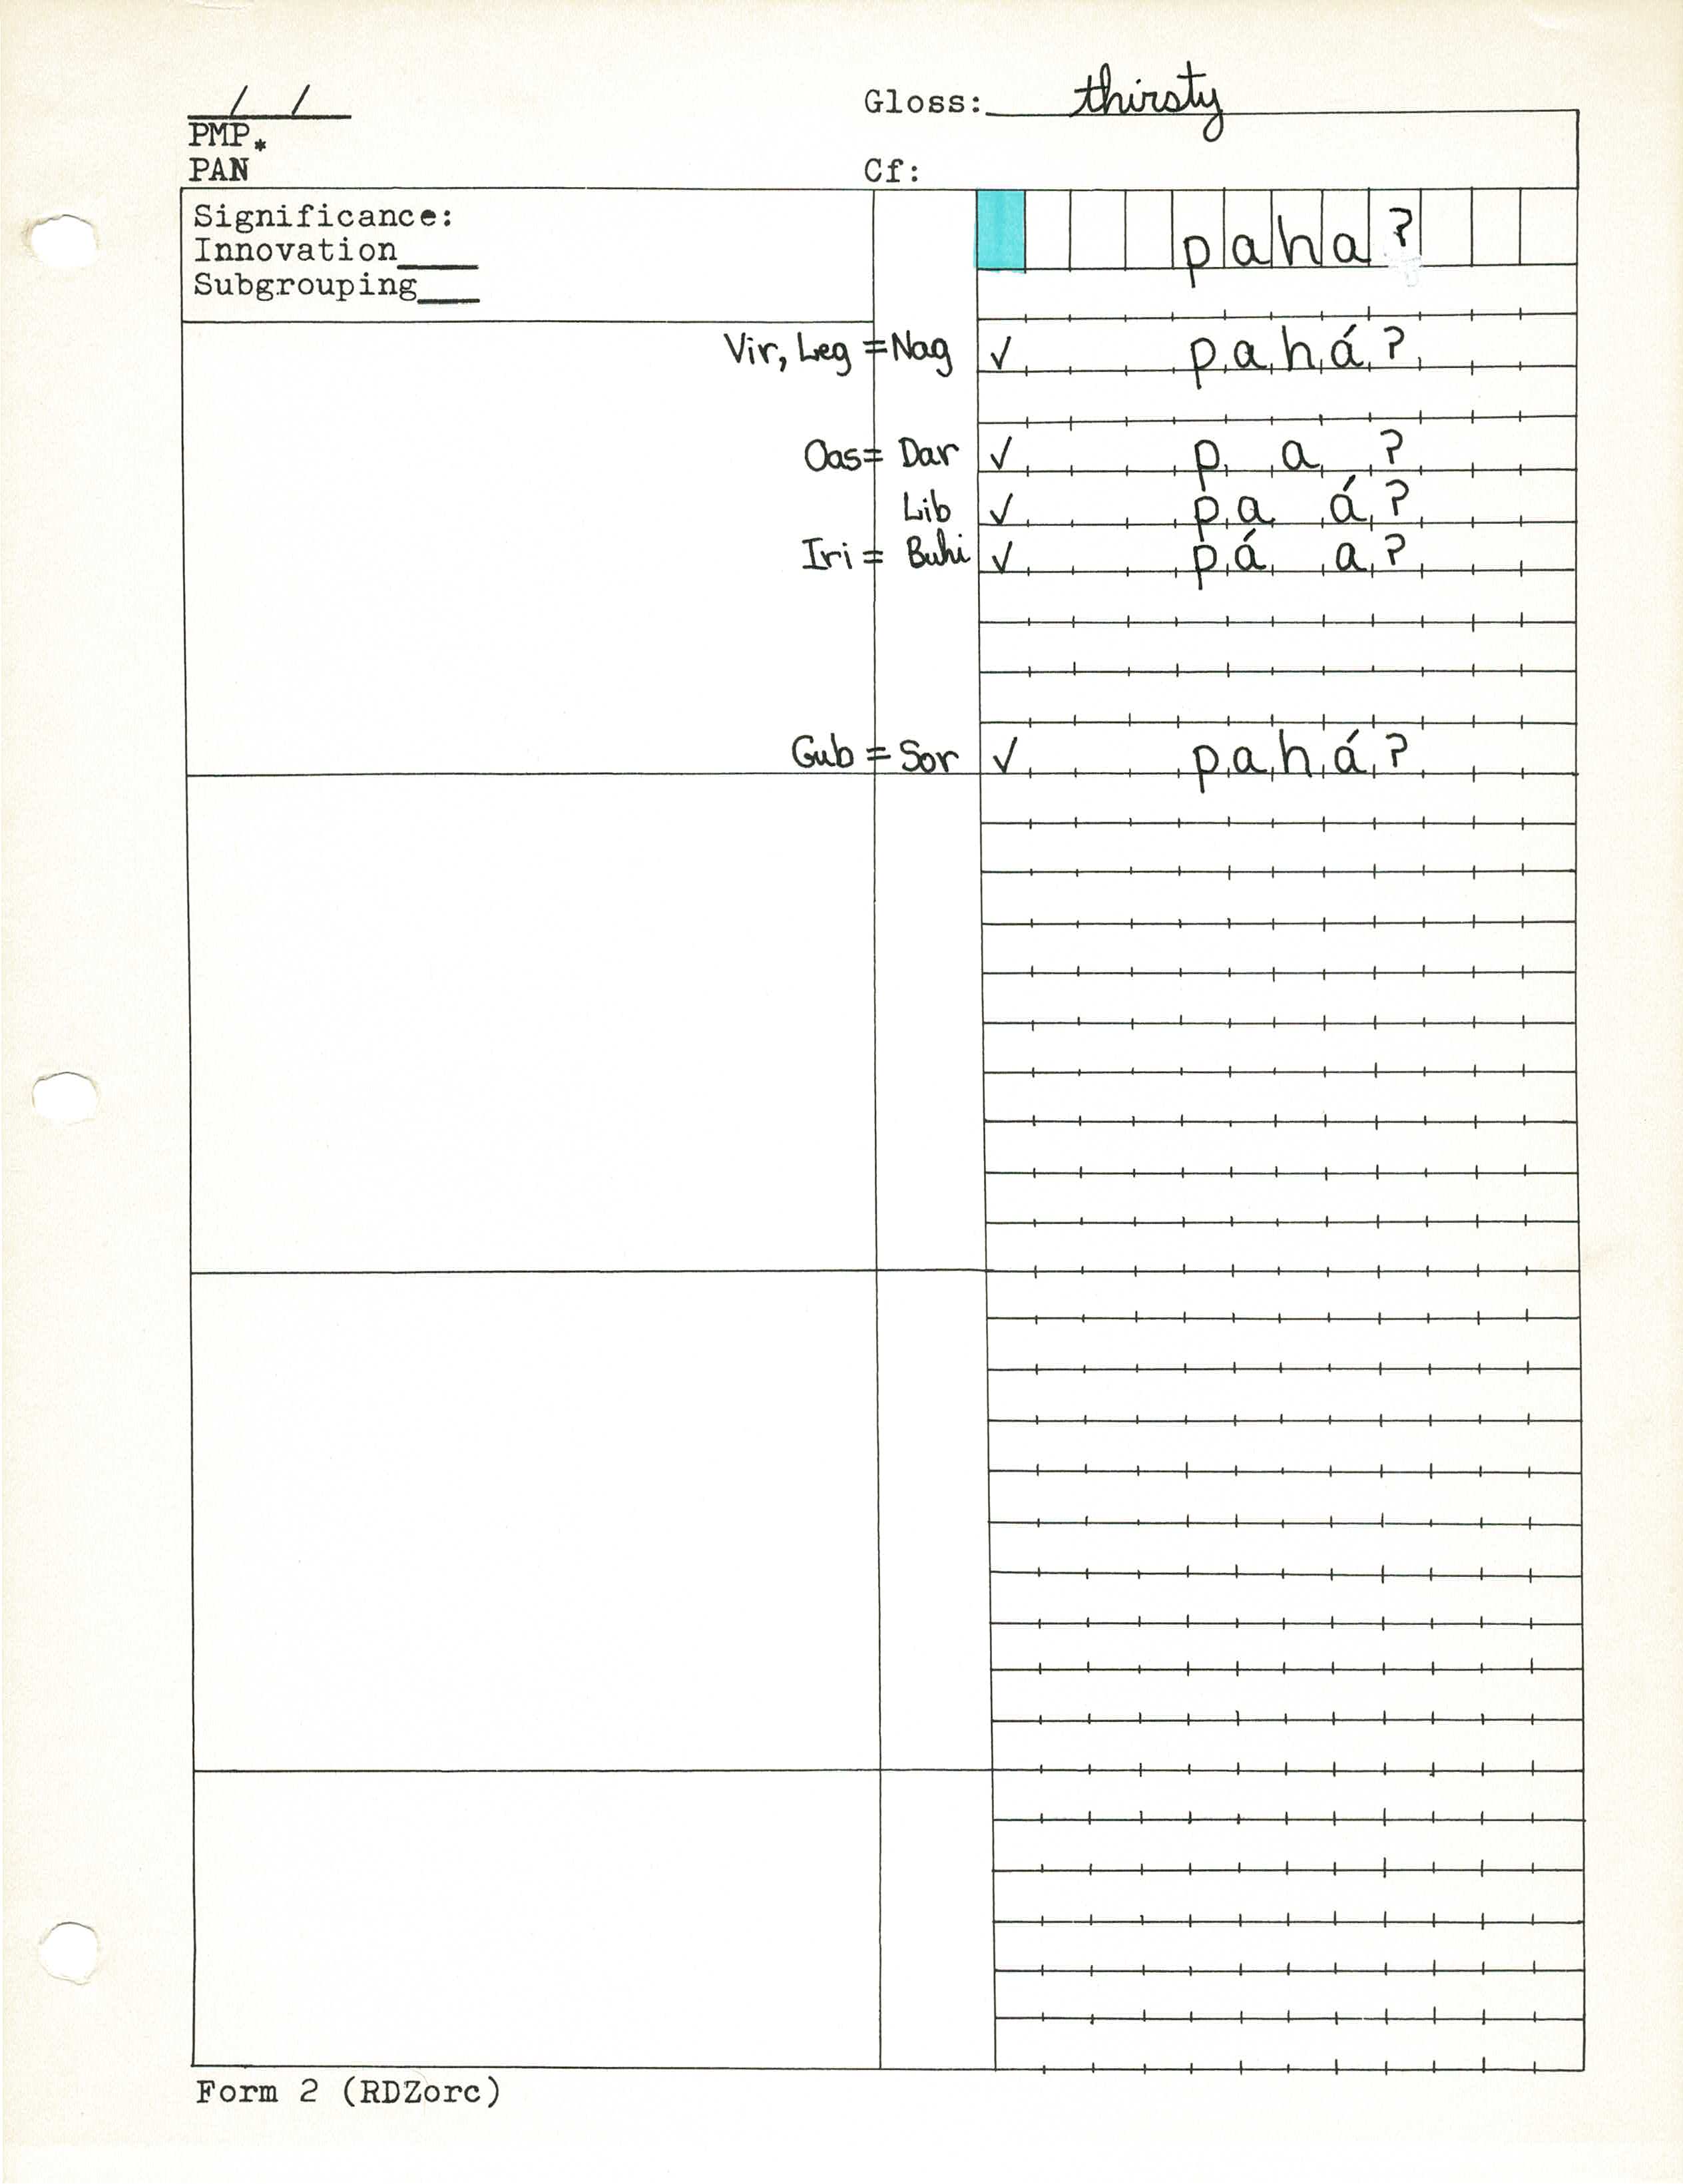 / / Gloss: thirsty
PMP*
PAN Cf:
Significance: paha?
Innovation____
Subgrouping____
Vir, Leg = Nag ✓ pahá?
Oas = Dar ✓ p a ?
Lib ✓ pa á?
Iri = Buhi ✓ pá a?
Gub = Sor ✓ pahá?
Form 2 (RDZorc)